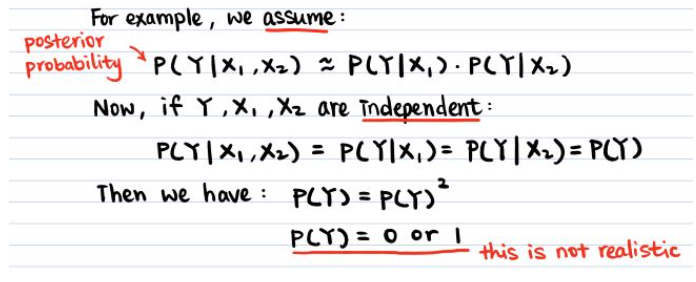 For example, we assume:
posterior
probability P(Y|X₁,X₂) ≈ P(Y|X₁)·P(Y|X₂)
Now, if Y, X₁, X₂ are independent:
P(Y|X₁,X₂) = P(Y|X₁) = P(Y|X₂) = P(Y)
Then we have: P(Y) = P(Y)²
P(Y) = 0 or 1
this is not realistic